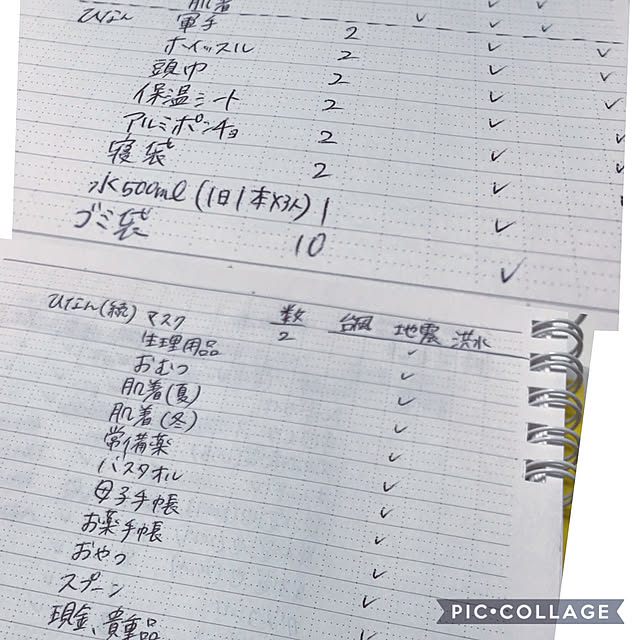 肌着
ひなん 軍手
ホイッスル 2
頭巾 2
保温シート 2
アルミポンチョ 2
寝袋 2
水500ml(1日1本×3人) 1
ゴミ袋 10
ひなん(続) マスク 数 台風 地震 洪水
生理用品 2
おむつ
肌着(夏)
肌着(冬)
常備薬
バスタオル
母子手帳
お薬手帳
おやつ
スプーン
現金、貴重品
PIC•COLLAGE